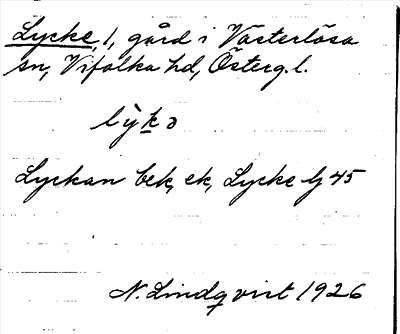 Lycke, 1, gård i Västerlösa
sn, Vifolka hd, Österg. l.
lỳk̲ə
Lyckan bek, ek, Lycke Ij 45
N. Lindqvist 1926